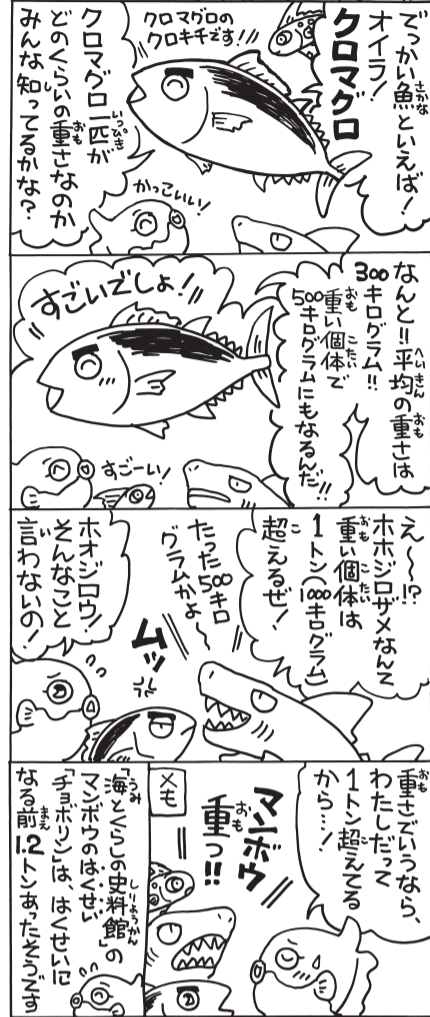 でっかい魚といえば!
オイラ!
クロマグロ
クロマグロの
クロキチです!!
クロマグロ一匹が
どのくらいの重さなのか
みんな知ってるかな?
かっこいい!
なんと!!平均の重さは
300キログラム!!
重い個体で
500キログラムにもなるんだ!!
すごいでしょ!
すごーい!
え〜〜!?
ホホジロザメなんて
重い個体は
1トン(1000キログラム)
超えるぜ!
たった500キロ
グラムかよ〜
ムッ
ホオジロウ!
そんなこと
言わないの!
重さでいうなら、
わたしだって
1トン超えてる
から…!
マンボウ
重っ!!
メモ
「海とくらしの史料館」の
マンボウのはくせい
「チョボリン」は、はくせいに
なる前1.2トンあったそうです